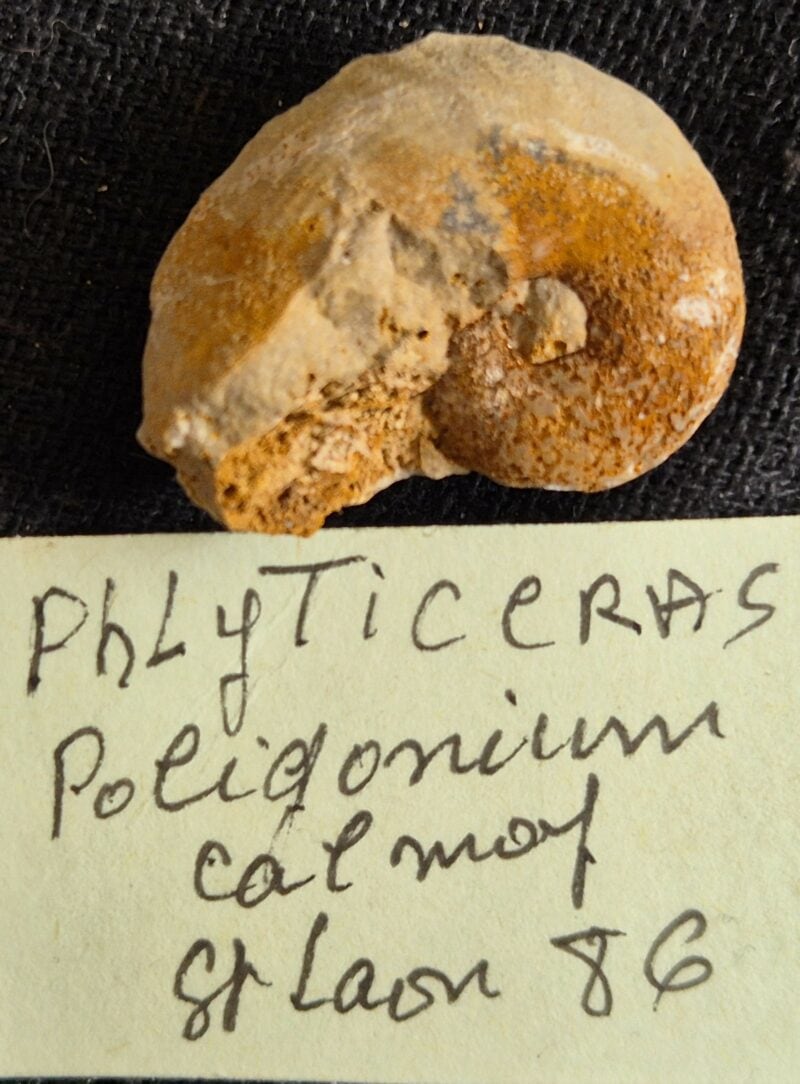 PhLyTiceRAS
Poligonium
cal moy
St Laon 86